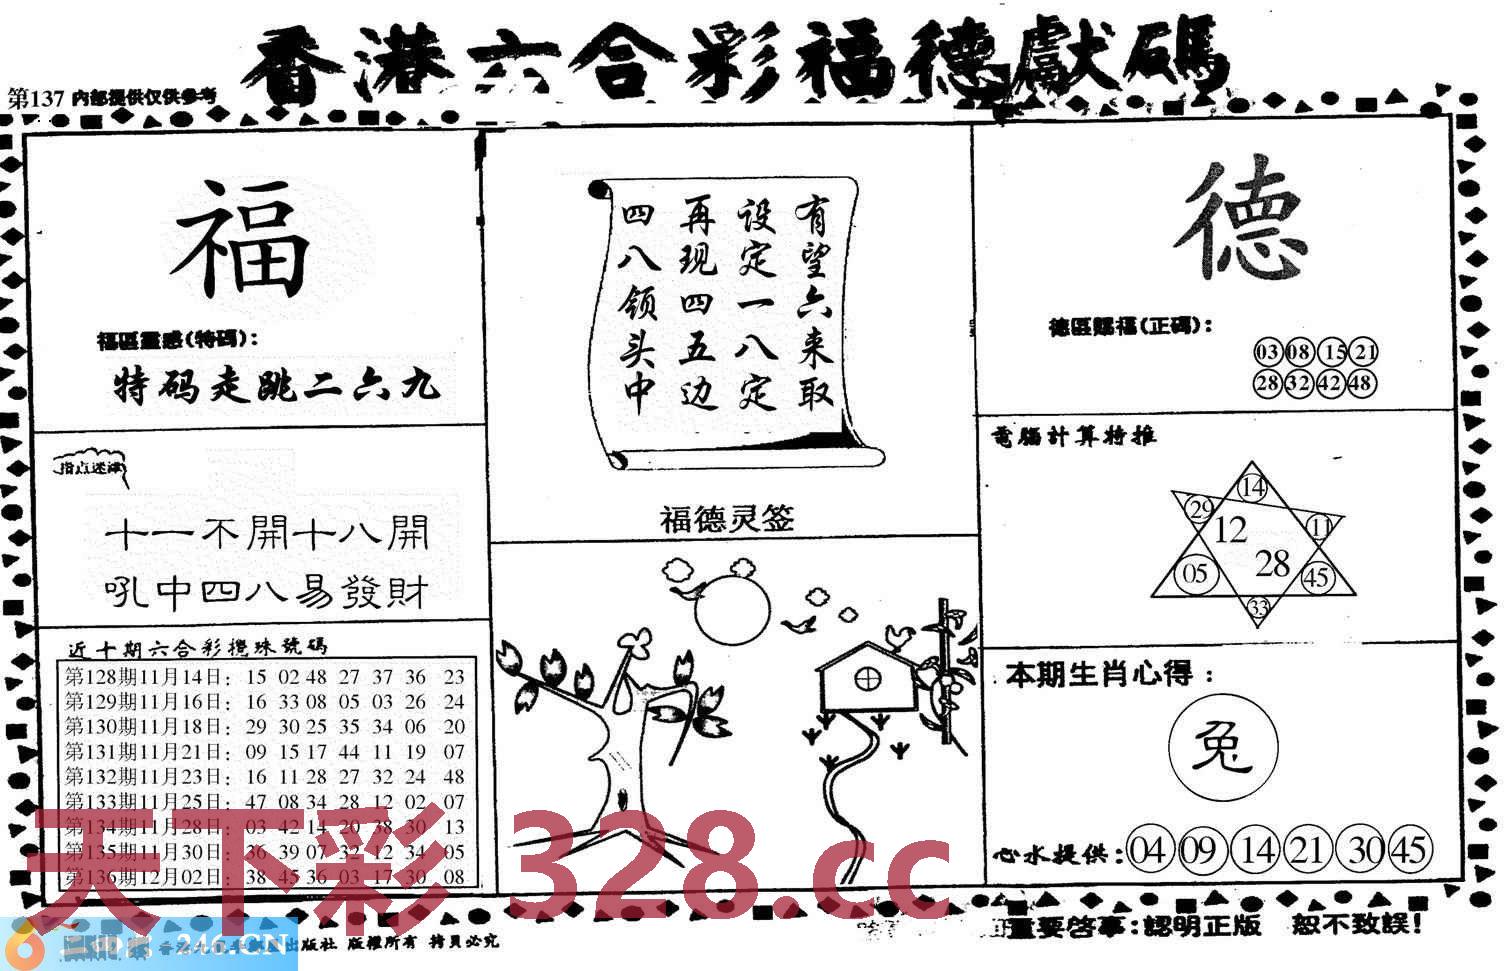 香港六合彩福德獻碼
第137 内部提供仅供参考
福
福區靈感(特碼):
特码走跳二六九
指点迷津
十一不開十八開
吼中四八易發財
近十期六合彩攪珠號碼
第128期11月14日: 15 02 48 27 37 36 23
第129期11月16日: 16 33 08 05 03 26 24
第130期11月18日: 29 30 25 35 34 06 20
第131期11月21日: 09 15 17 44 11 19 07
第132期11月23日: 16 11 28 27 32 24 48
第133期11月25日: 47 08 34 28 12 02 07
第134期11月28日: 03 42 14 20 38 30 13
第135期11月30日: 36 39 07 32 12 34 05
第136期12月02日: 38 45 36 03 17 30 08
有望六来取
设定一八定
再现四五边
四八领头中
福德灵签
德
德區賜福(正碼):
03 08 15 21
28 32 42 48
電腦計算特推
14
29
12
11
28
05
45
33
本期生肖心得:
兔
心水提供: 04 09 14 21 30 45
天下彩 328.cc
246.CN
出版社 版權所有 拷貝必究
重要啓事:認明正版 恕不致誤!